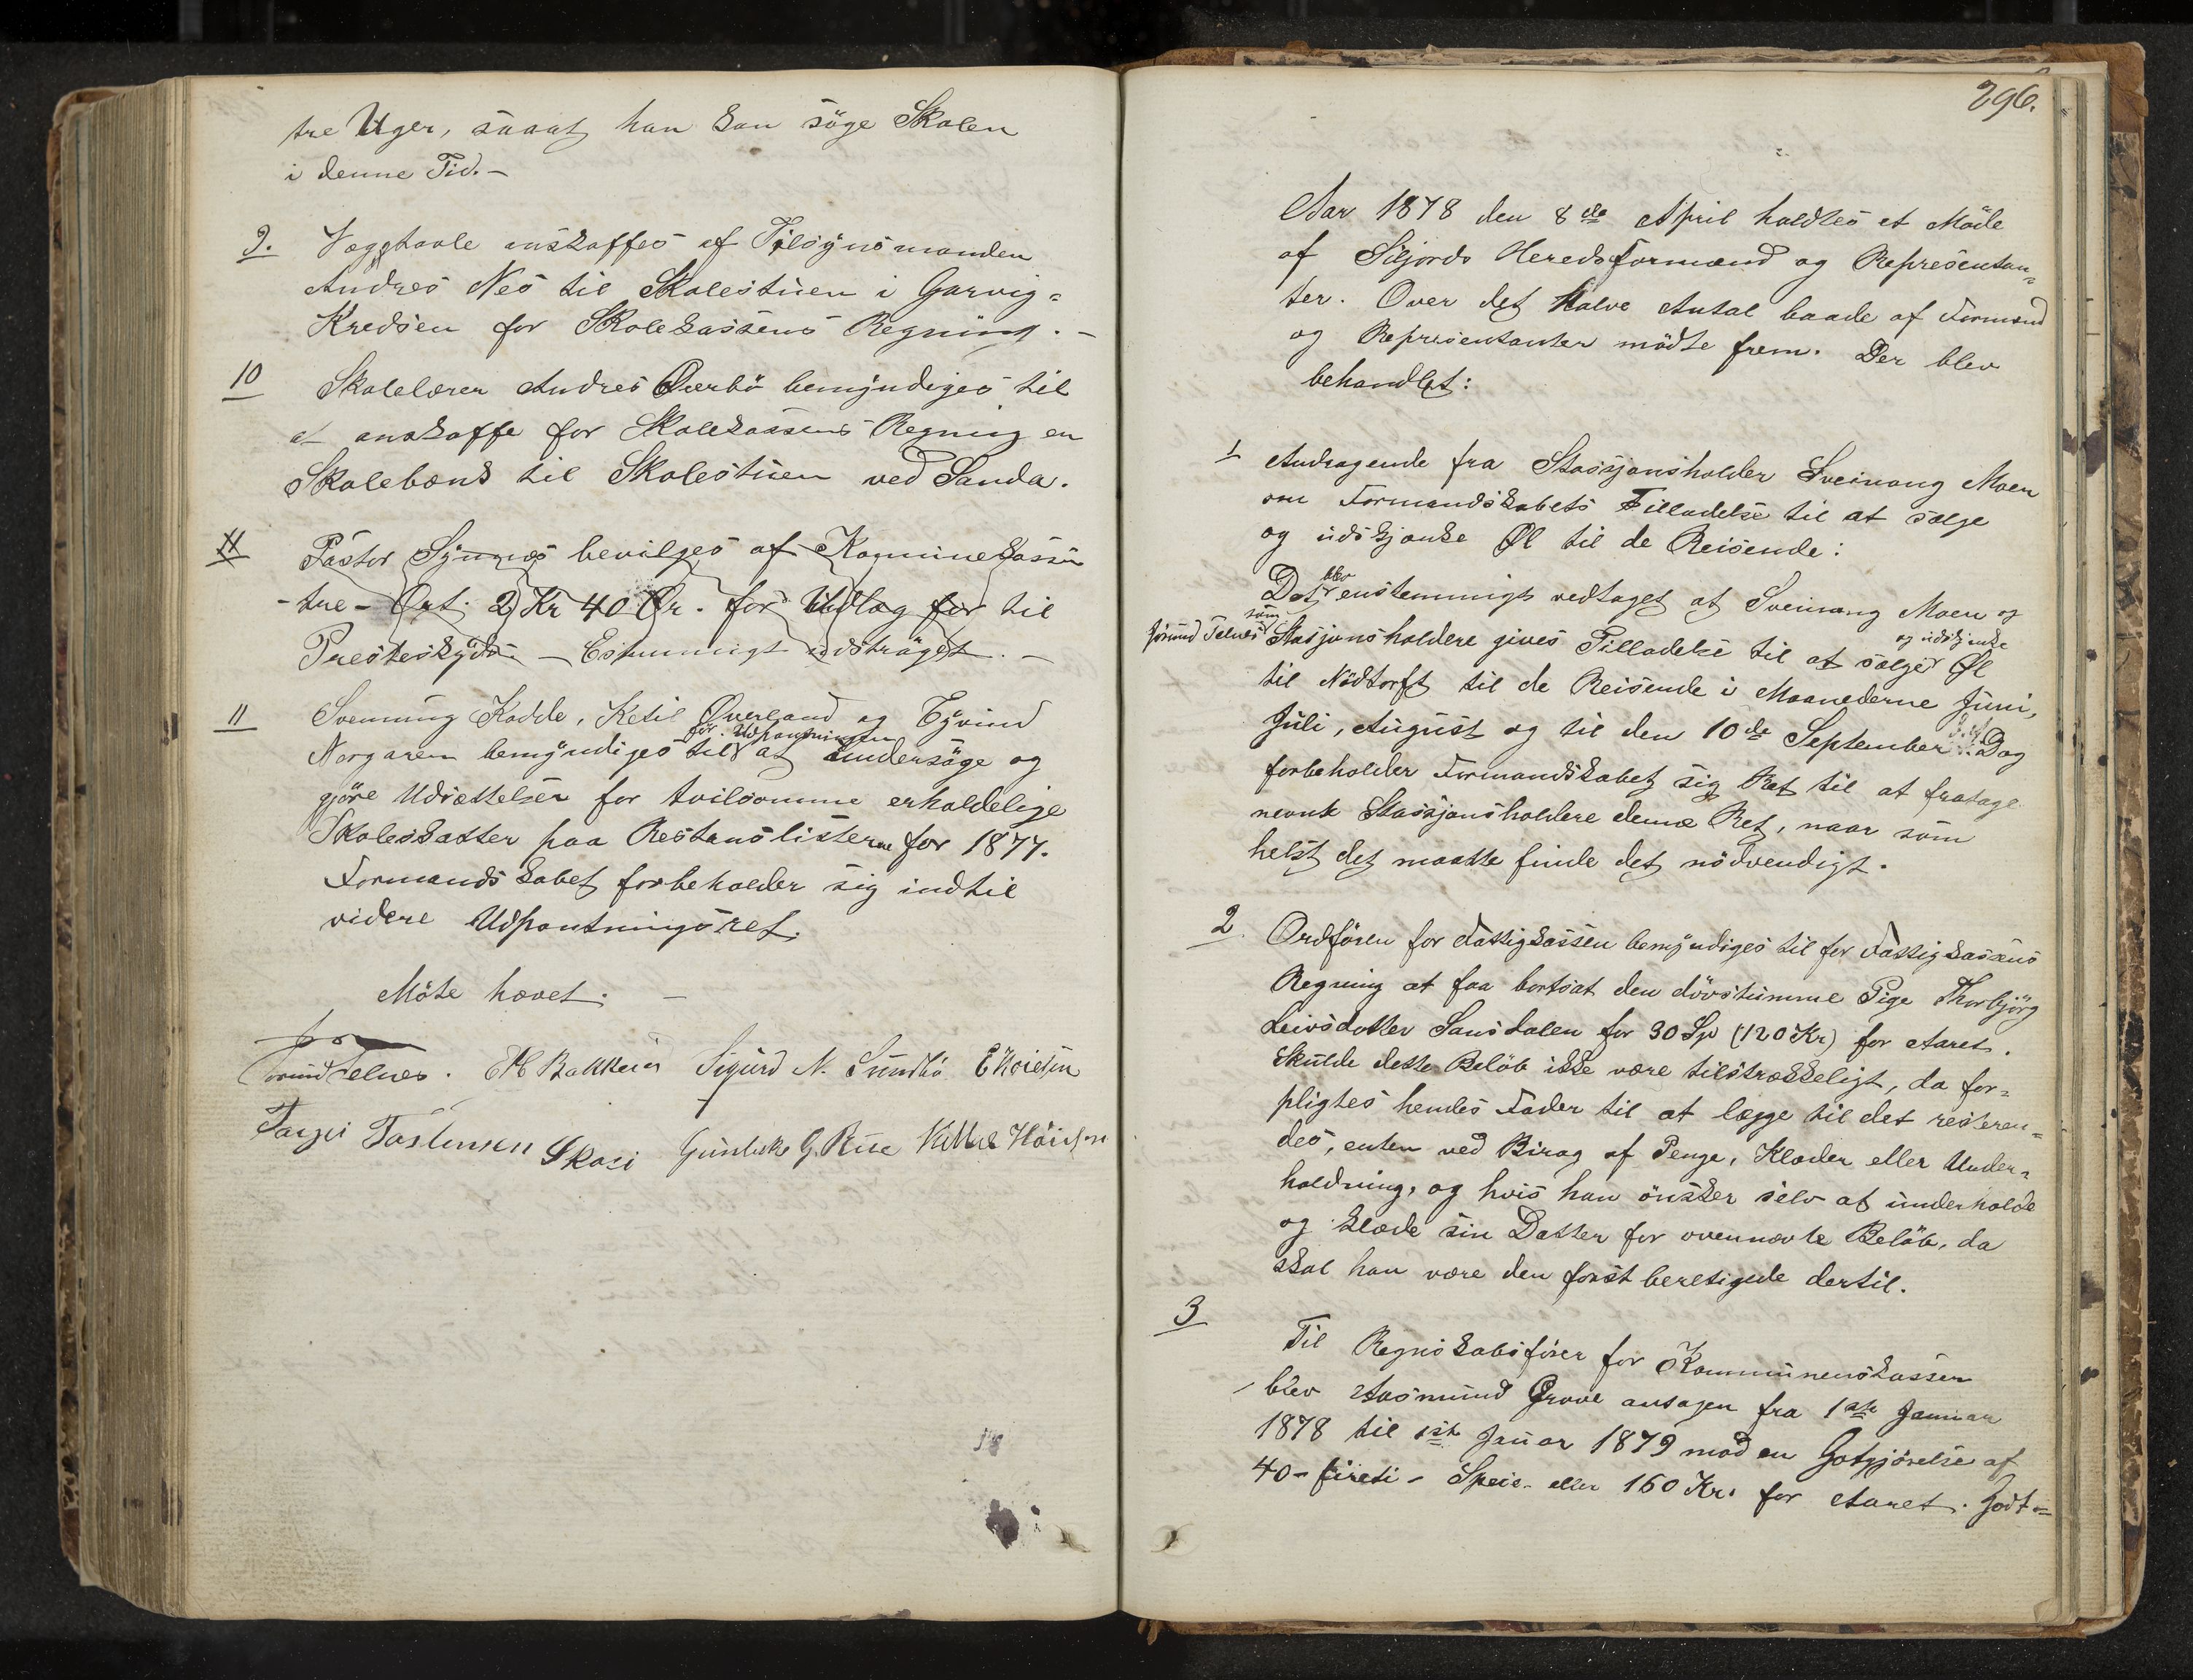 tre Uger, saaat han kan söge Skolen
i denne Tid. –
9. Vægghavle anskaffes af Tilsynsmanden
Andres Nes til Skolestuen i Garvig=
Kredsen for Skolekassens Regning. –
10 Skolelærer Andres Överbö bemyndiges til
at anskaffe for Skolekassens Regning en
Skolebænk til Skolestuen ved Sanda.
11 Pastor Synnæs bevilges af Kommunekassen
- tre - Ort. 2 Kr 40 Ør. for Udlæg for til
Presteskyds. – Estemmigt udströget. –
11 Svenning Kodde, Ketil Øverland og Eyvind
før Udpantningen
Norgaren bemyndiges til at undersöge og
gjöre Udsættelser for tvilsomme erholdelige
Skoleskatter paa Restanslisterne for 1877.
Formandskabet forbeholder sig indtil
videre Udpantningsret.
Möte hævet. –
Jorund Telnes. EH Bakken Sigurd N. Sundbö E Hoidsen
Targei Tostensen Skori Gunleik G. Rue
296.
Aar 1878 den 8de April holdtes et Möde
af Siljords Heredsformænd og Representan=
ter. Over det halve Antal baade af Formænd
og Representanter mödte frem. Der blev
behandlet:
1 Andragende fra Stassjonsholder Sveinong Moen
om Formandskabets Tilladelse til at sælge
og udskjænke Øl til de Reisende:
blev
Det enstemmigt vedtaget at Sveinong Moen og
som og udskjenke
Jörund Telnes Stasjonsholdere gives Tilladelse til at sælge Øl
til Nödtorft til de Reisende i Maanederne Juni,
Juli, August og til den 10de September d.A. Dog
forbeholder Formandskabet sig Ret til at fratage
nevnte Stassjonsholdere denne Ret, naar som
helst det maatte finde det nödvendigt.
2. Ordfören for Fattigkassen bemyndiges til for Fattigkassens
Regning at faa bortsat den dövstumme Pige Thorbjörg
Leivsdotter Sansdalen for 30 Sp (120 Kr) for Aaret.
Skulde dette Belöb ikke være tilstrækkeligt, da for=
pligtes hendes Fader til at lægge til det resteren=
des, enten ved Birag af Penge, Klæder eller Under=
holdning, og hvis han önsker selv at underholde
og klæde sin Datter for ovennævte Belöb, da
skal han være den först beretigede dertil.
3 Til Regnskabsförer for Kommunenskassen
blev Aasmund Grave antagen fra 1ste Januar
1878 til 1ste Januar 1879 mod en Gotgjörelse af
40 - fireti - Speis. eller 160 Kr. for Aaret. Godt=